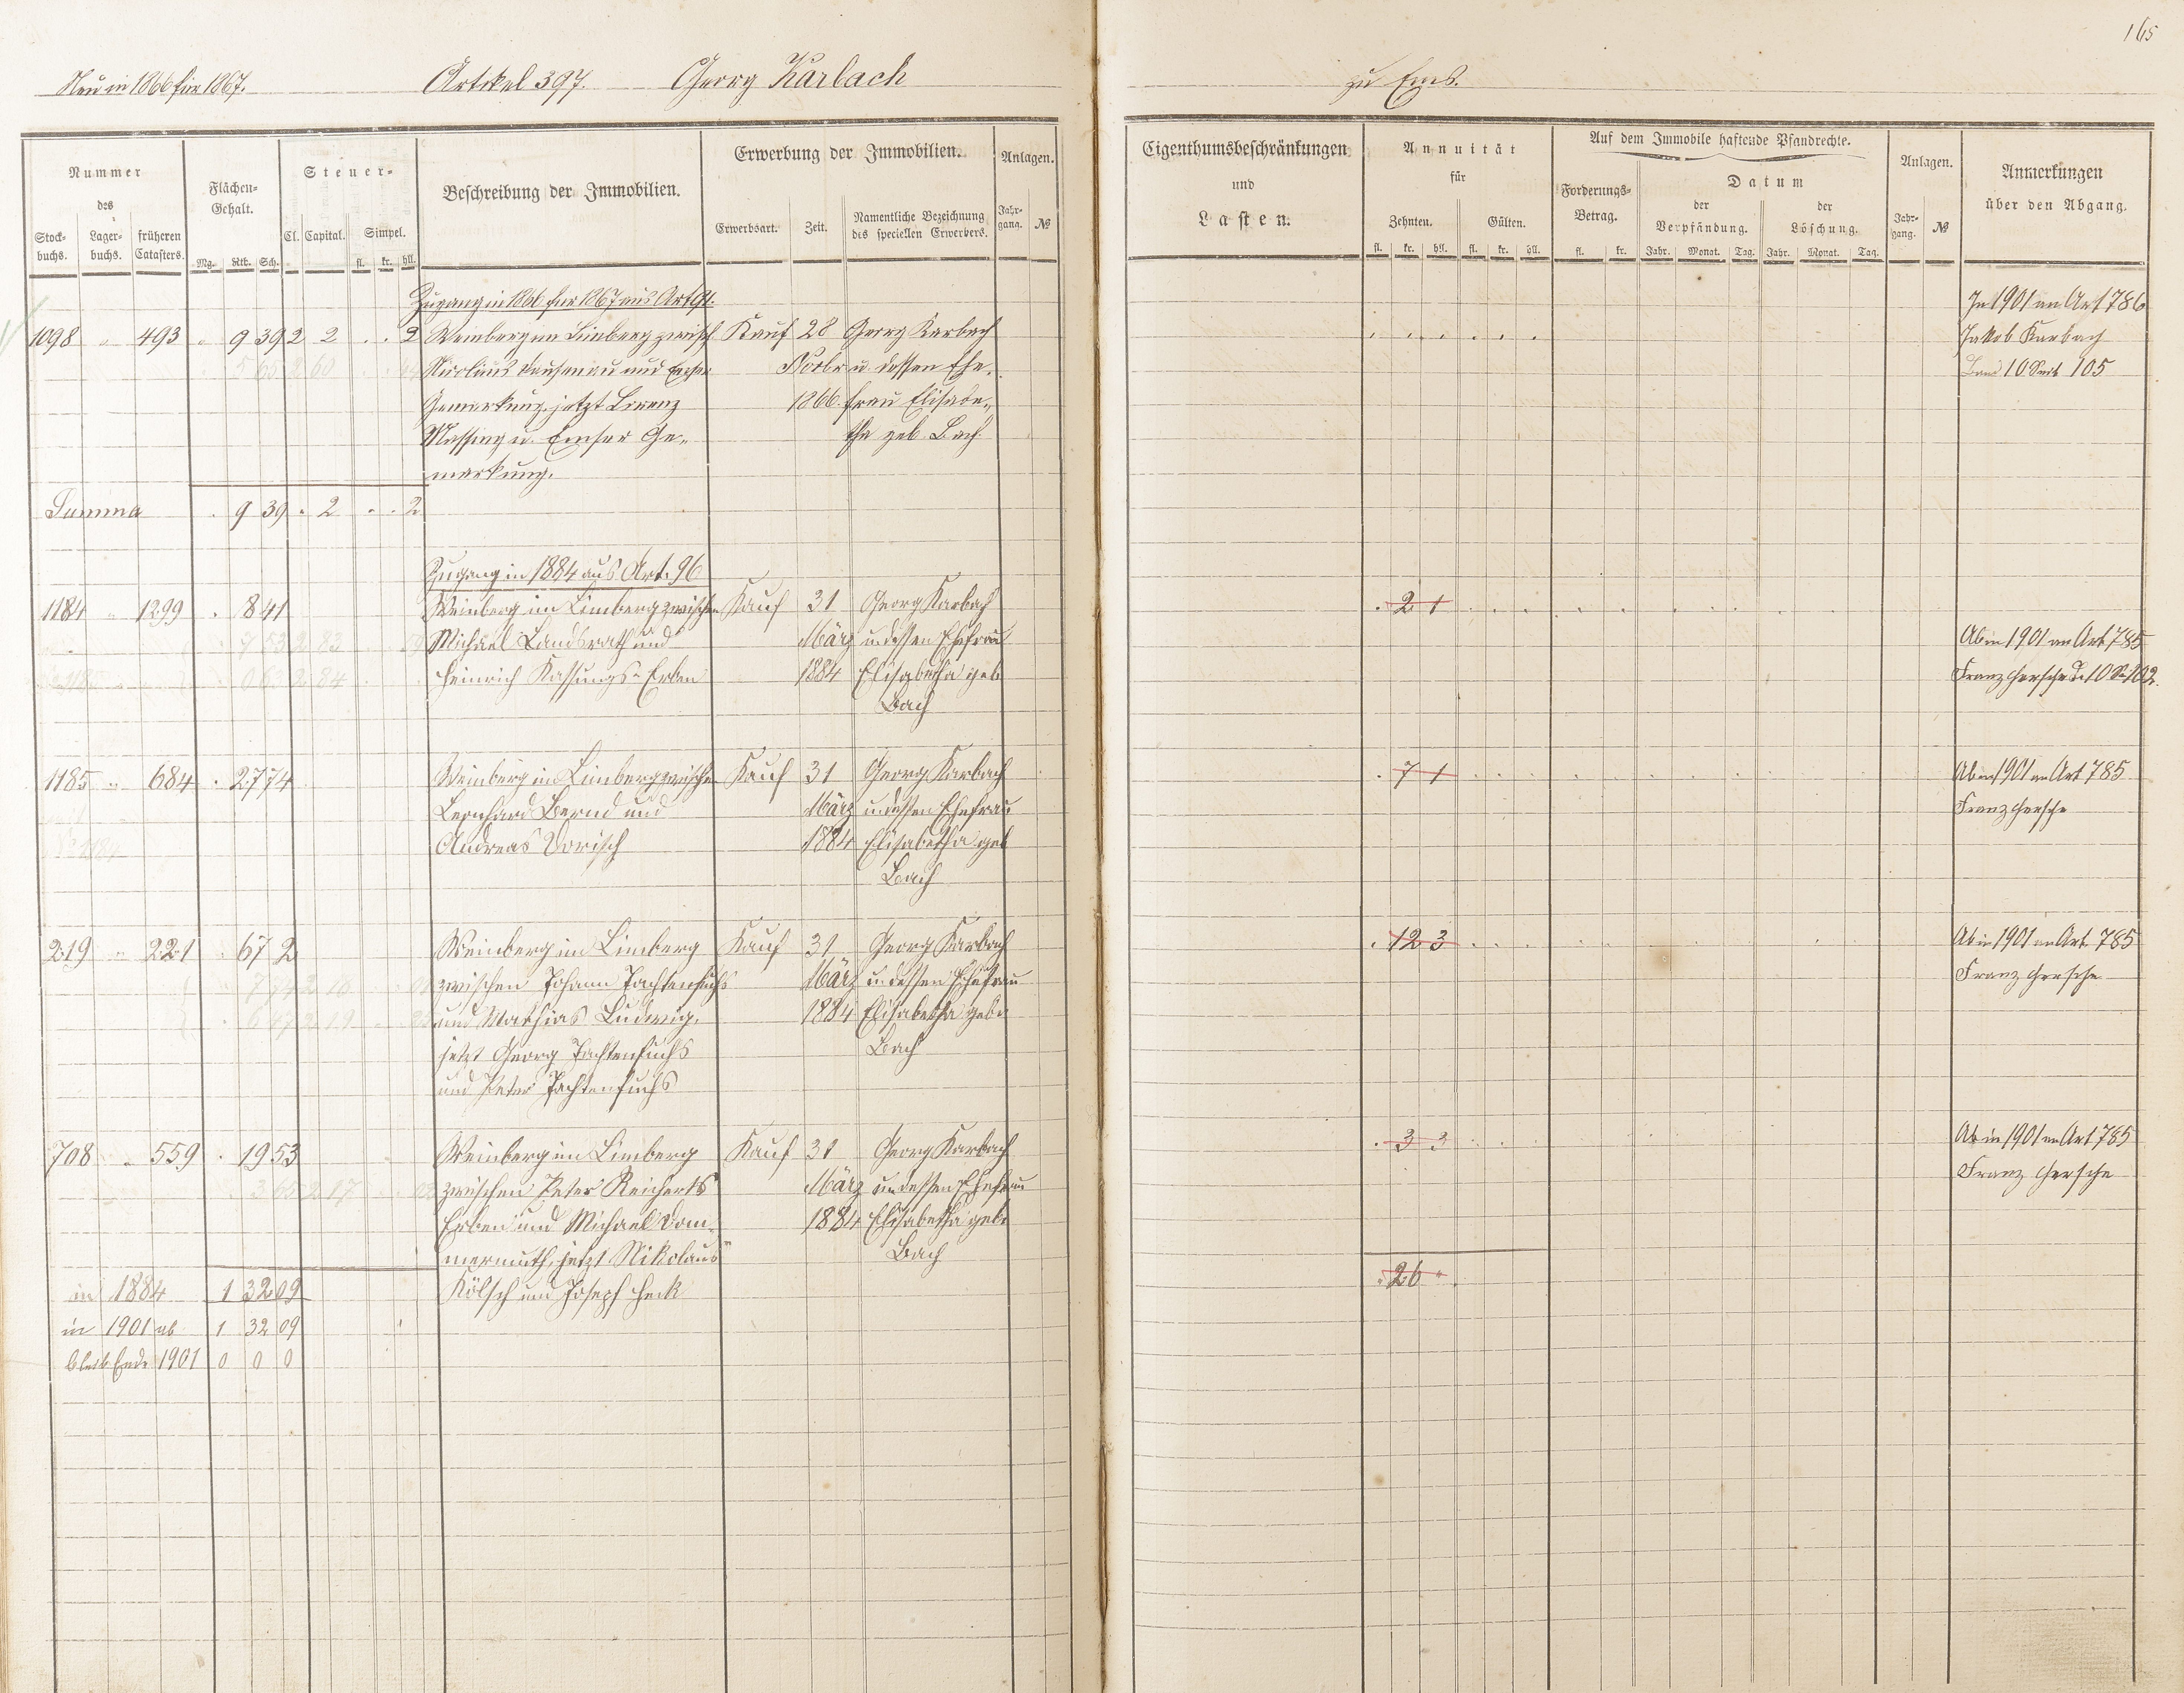 165
Neu in 1866 für 1867. Artikel 397. Georg Karbach zu Ems.
Nummer des
Stockbuchs. Lagerbuchs. früheren Catasters.
Flächen-Gehalt.
Mg. Rth. Sch.
Steuer-
Cl. Capital. Simpel.
fl. kr. hll.
Beschreibung der Immobilien.
Erwerbung der Immobilien.
Erwerbsart. Zeit. Namentliche Bezeichnung des speciellen Erwerbers.
Anlagen.
Jahrgang. №
Eigenthumsbeschränkungen
und
Lasten.
Annuität
für
Zehnten. Gülten.
fl. kr. hll. fl. kr. hll.
Auf dem Immobile haftende Pfandrechte.
Forderungs-Betrag.
fl. kr.
Datum
der Verpfändung. der Löschung.
Jahr. Monat. Tag. Jahr. Monat. Tag.
Anlagen.
Jahrgang. №
Anmerkungen
über den Abgang.
Zugang in 1866 für 1867 aus Art 91. In 1901 an Art 786
1098 " 493 " 9 39 2 2 . . 2 Weinberg im Limberg zwisch Kauf 28 Georg Karbach Jakob Karbach
Nicolaus Dausenau und Emser Novbr u. dessen Ehe- Band 10 Seite 105
Gemarkung, jetzt Lorenz 1866. frau Elisabe-
Massing u. Emser Ge- tha geb. Bach.
markung.
Summa . 9 39 . 2 . . 2
Zugang in 1884 aus Art. 96
1184 " 1299 . 8 41 Weinberg im Limberg zwischen Kauf 31 Georg Karbach . 2 1
Michael Landsrath und März u. dessen Ehefrau Ab in 1901 an Art 785
Heinrich Kassungs Erben 1884 Elisabetha geb Franz Hersche B. 10 S. 102.
Bach
1185 " 684 . 27 74 Weinberg in Limberg zwischen Kauf 31 Georg Karbach . 7 1 Ab in 1901 an Art 785
Leonhard Bernd und März u. dessen Ehefrau Franz Hersche
Andreas Dorisch 1884 Elisabetha geb
Bach
219 " 221 . 67 2 Weinberg im Limberg Kauf 31 Georg Karbach . 12 3 Ab in 1901 an Art. 785
zwischen Johann Fachtenfuchs März u. dessen Ehefrau Franz Hersche
und Mathias Ludwig, 1884 Elisabetha geb.
jetzt Georg Fachtenfuchs Bach
und Peter Fachtenfuchs
708 " 559 . 19 53 Weinberg im Limberg Kauf 31 Georg Karbach . 3 3 Ab in 1901 an Art 785
zwischen Peter Reicherts März u. dessen Ehefrau Franz Hersche
Erben und Michael Dom- 1884 Elisabetha geb.
mermuth, jetzt Nikolaus Bach
in 1884 1 32 09 Kölsch und Joseph Heck . 26 "
in 1901 ab 1 32 09
bleib Ende 1901 0 0 0